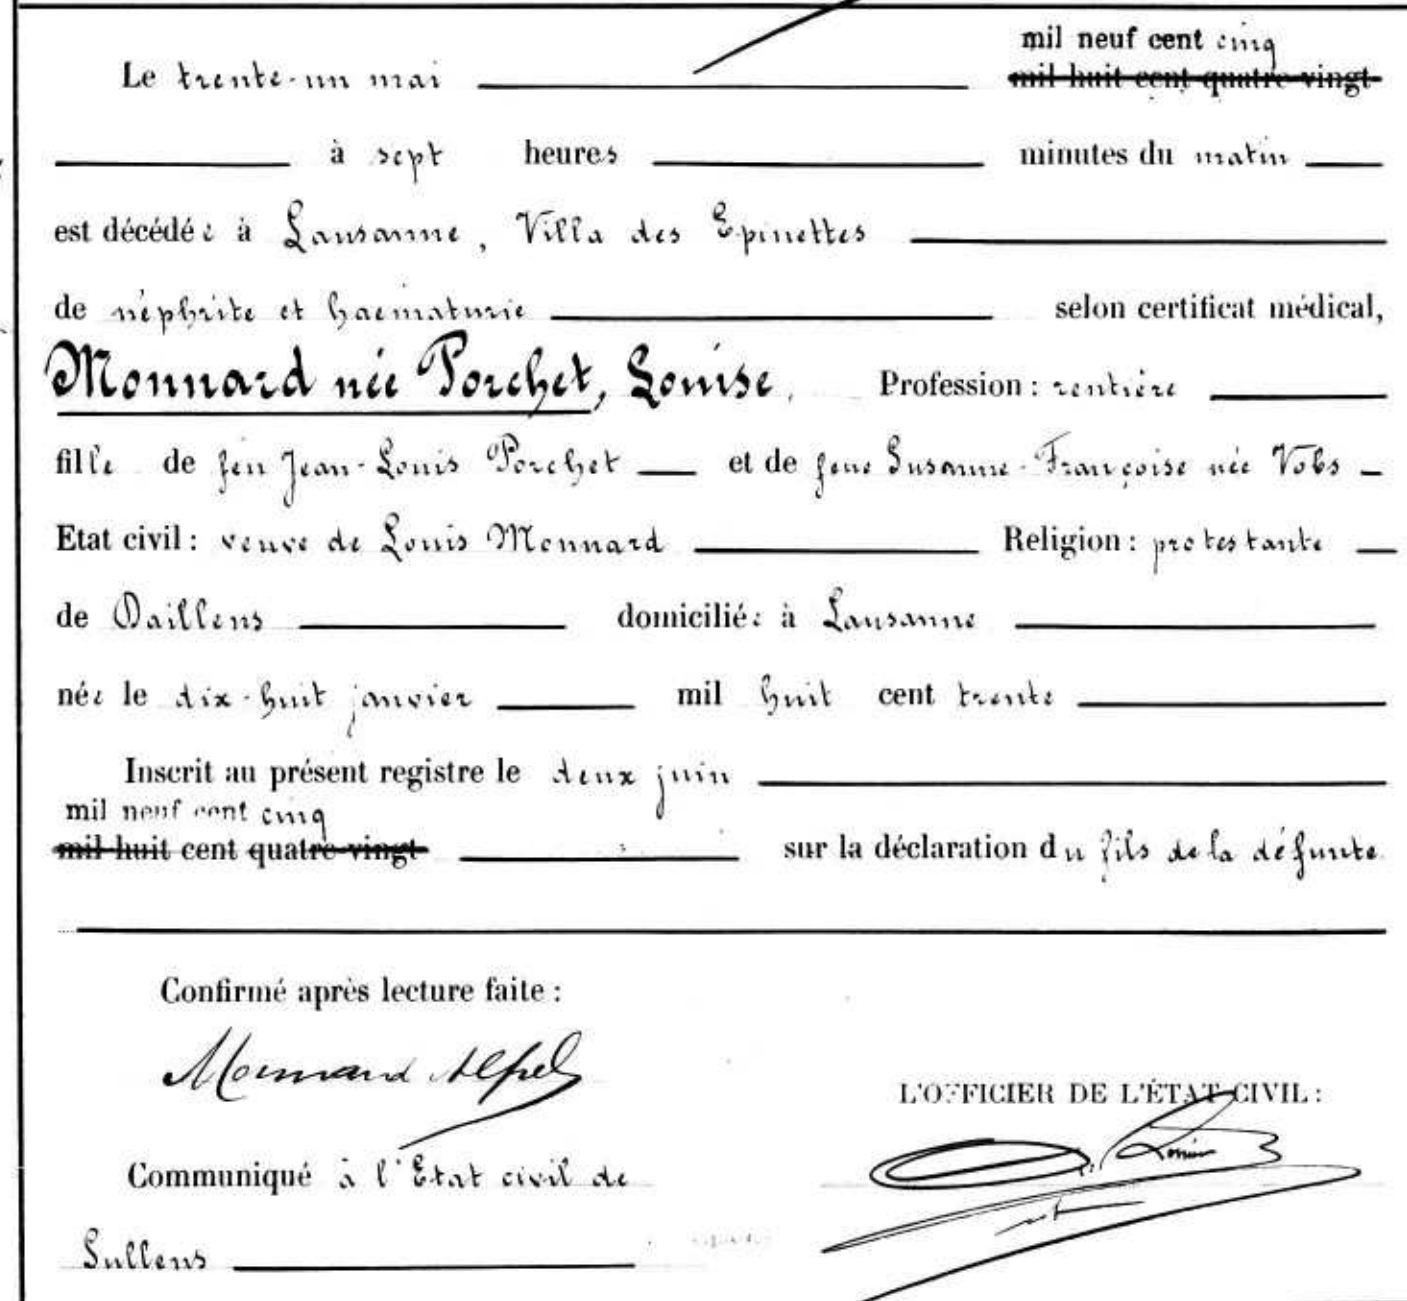 mil neuf cent cinq
Le trente-un mai mil huit cent quatre-vingt
à sept heures minutes du matin
est décédée à Lausanne, Villa des Epinettes
de néphrite et haematurie selon certificat médical,
Monnard née Porchet, Louise, Profession : rentière
fille de feu Jean-Louis Porchet et de feue Susanne-Françoise née Vobs
Etat civil : veuve de Louis Monnard Religion : protestante
de Daillens domiciliée à Lausanne
née le dix-huit janvier mil huit cent trente
Inscrit au présent registre le deux juin
mil neuf cent cinq
mil huit cent quatre-vingt sur la déclaration du fils de la défunte.
Confirmé après lecture faite :
Monnard Alfred
L'OFFICIER DE L'ÉTAT CIVIL :
Communiqué à l'Etat civil de
Sullens